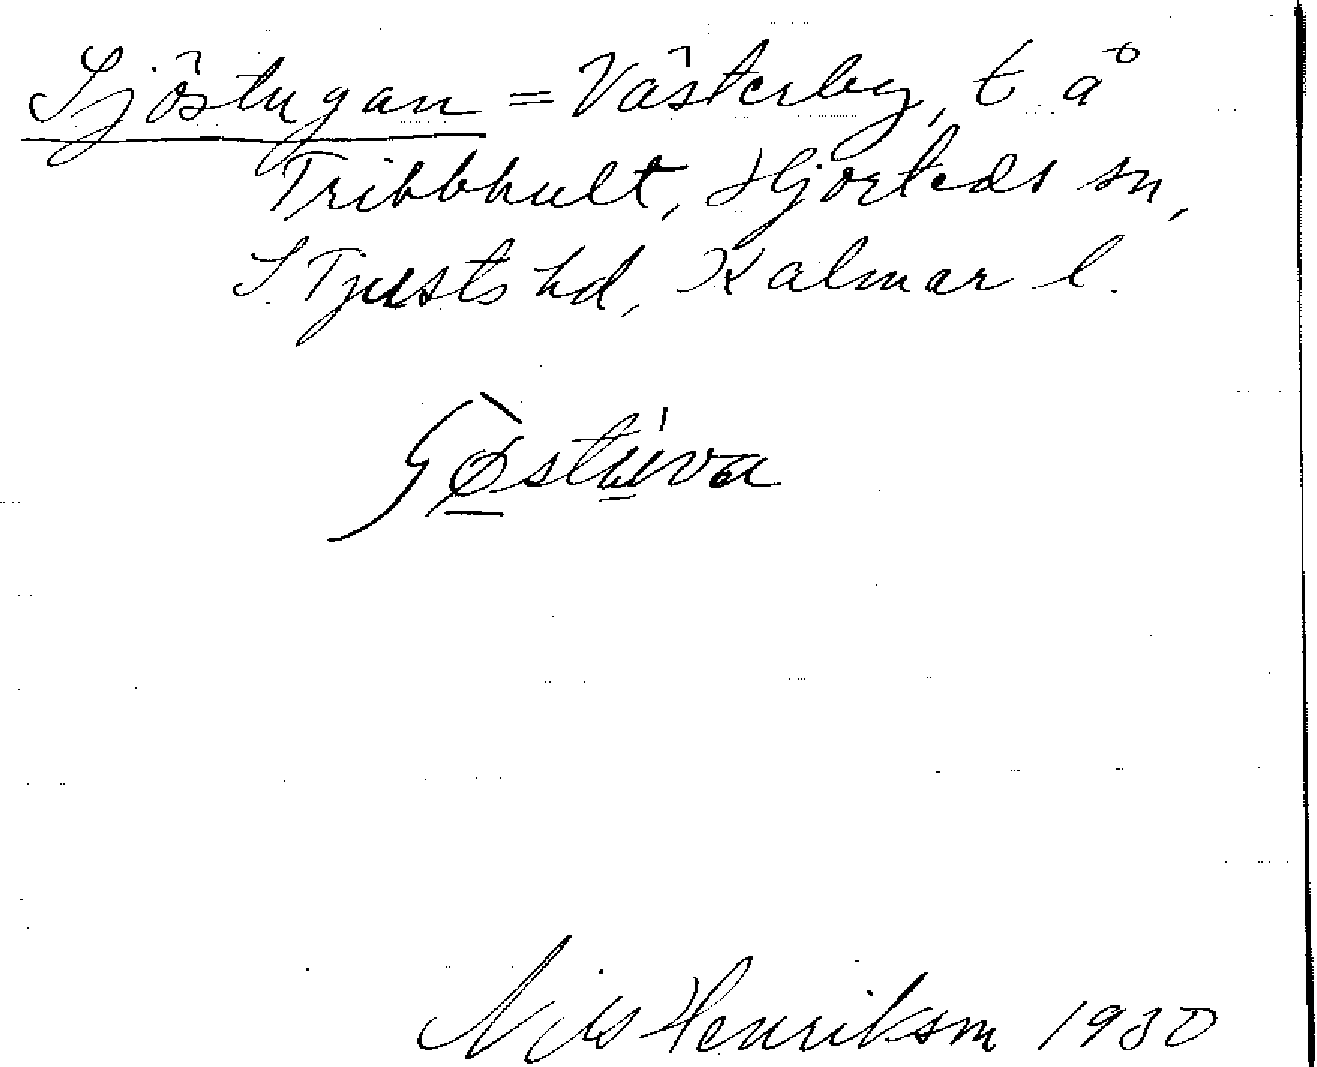 Sjöstugan = Västerby, t å
Tribbhult, Hjorteds sn,
S. Tjusts hd, Kalmar l.
Nils Henriksm 1930